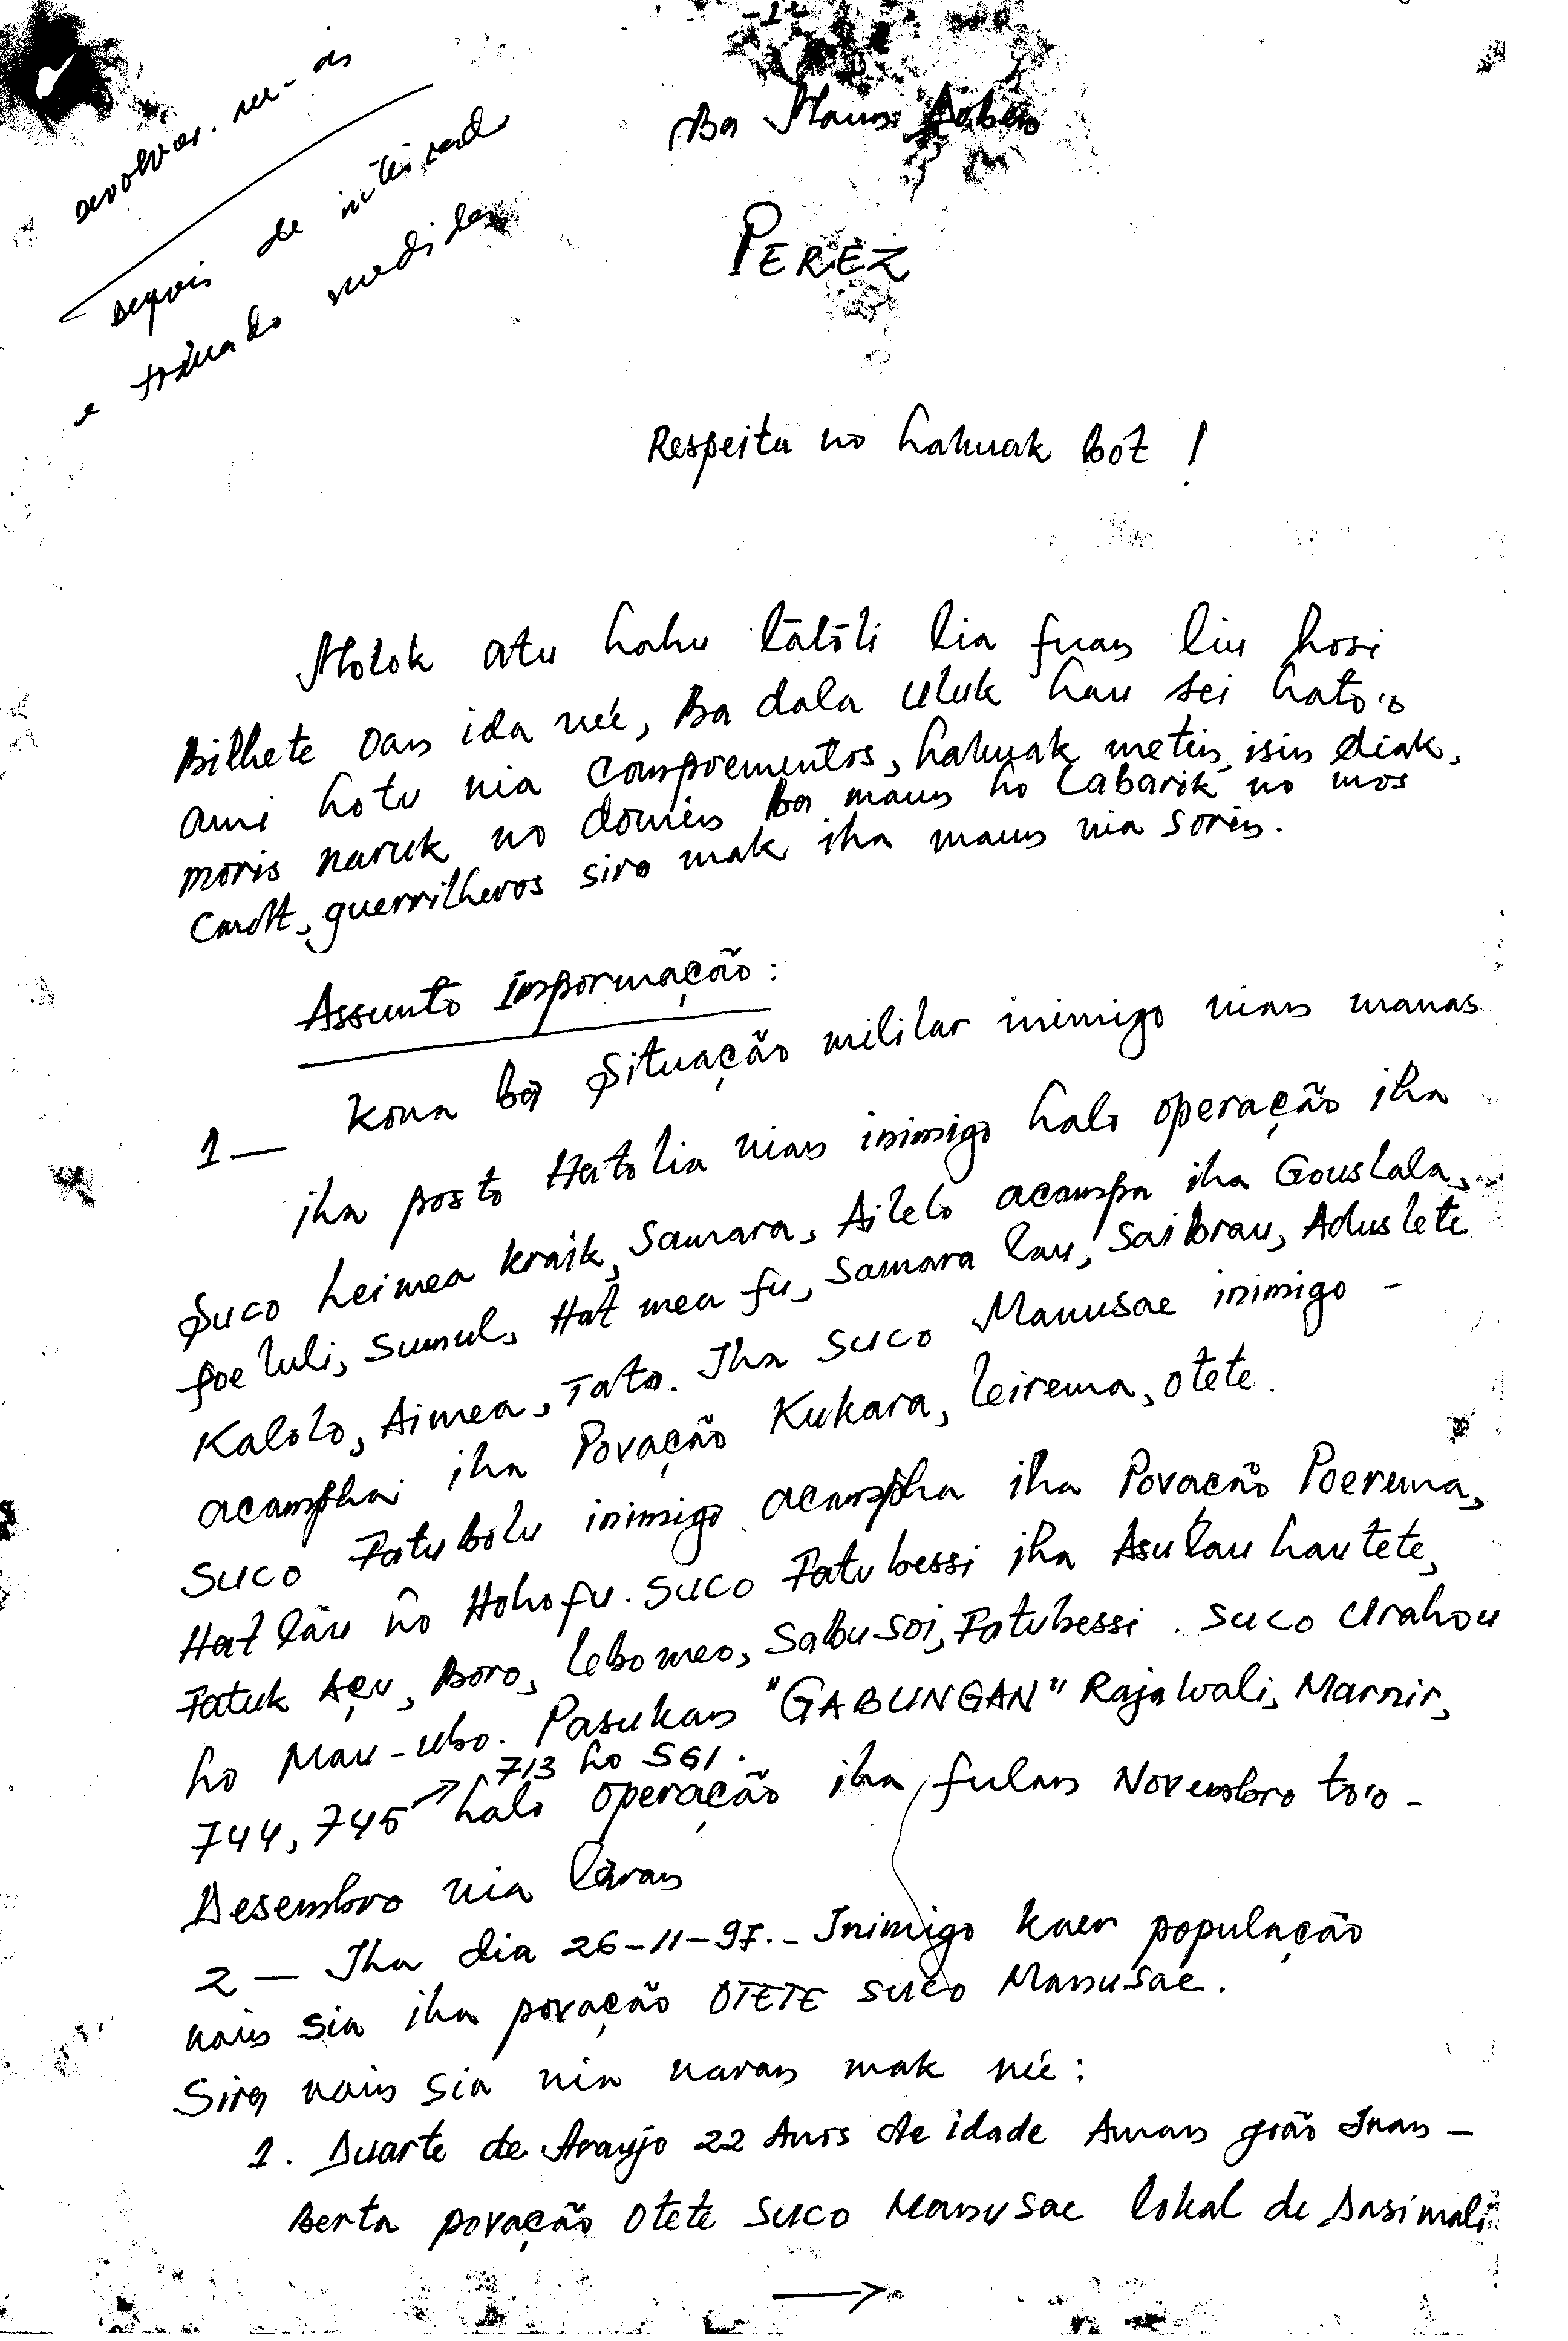 -1-
devolver-nu-os
depois de inteirado
e tomado medidas
Ba Maun
PEREZ
Respeitu no hakuak bot !
Molok atu hahu lātōli lia fuan liu hosi
Bilhete oan ida né'e, Ba dala uluk hau sei hato'o
ami hotu nia comprementos, hakuak metin, isin diak,
moris naruk no domin ba maun ho labarik no mos
Camst, guerrilheros sira mak iha maun nia sorin.
Assunto Imformação :
1 — Kona ba Situação militar inimigo nian manas
iha posto Hatolia nian inimigo halo operação iha
Suco Leimea kraik, Samara, Ailelo acampa iha Gouslala,
Poe luli, Sumul, Hat mea fu, Samara lau, Saibrau, Aduslete
Kalolo, Aimea, Tata. Iha suco Manusae inimigo -
acampha iha Povação Kukara, leirema, otete.
Suco Fatubolu inimigo acampha iha Povação Poerema,
Hat lāu no Hohofu. Suco Fatubessi iha Asulau hautete,
Fatuk Açu, Boro, lebomeo, Sabusoi, Fatubessi. Suco Urahou
ho Mau-ubo. Pasukan "GABUNGAN" Rajawali, Marnir,
713 ho SGI.
744, 745 halo operação iha fulan Novembro to'o -
Desembro nia lāran
2 — Iha dia 26-11-97.- Inimigo kaer população
nain sia iha povação OTETE suco Manusae.
Sira nain sia nia naran mak né'e :
1. Duarte de Araujo 22 Anos de idade Aman joão Inan -
Berta povação Otete suco Manusae lokal de Dasimali